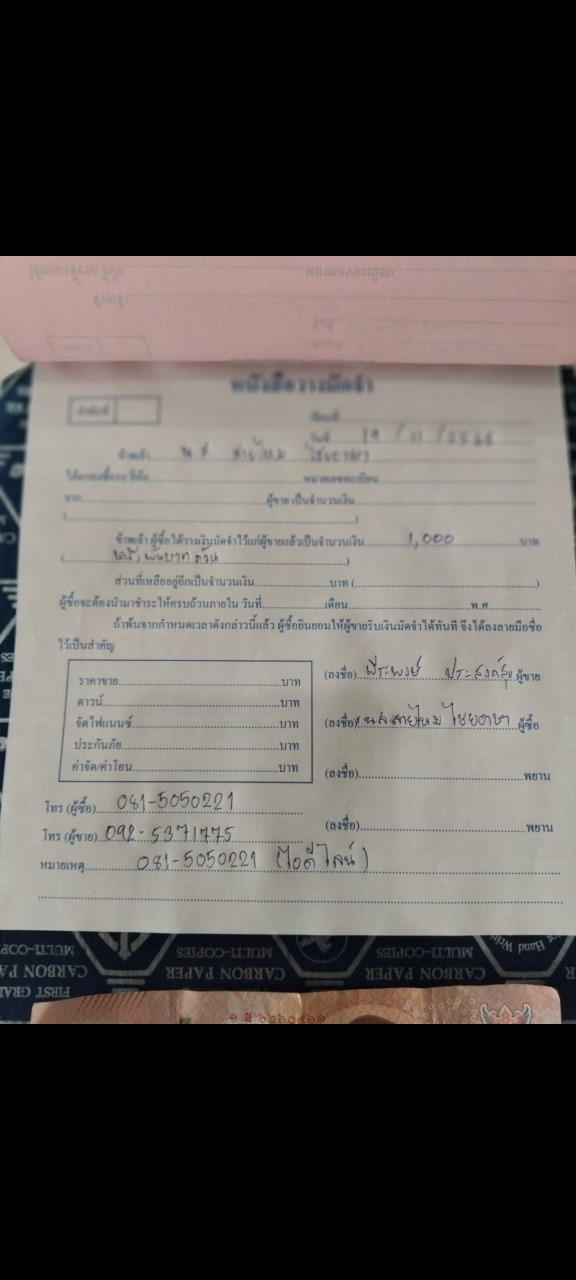 หนังสือวางมัดจำ
ลำดับที่
เขียนที่
วันที่ 19 / 11 / 2568
ข้าพเจ้า น.ส. สายไหม ไชยอาษา
ได้ตกลงซื้อรถ ยี่ห้อ หมายเลขทะเบียน
จาก ผู้ขาย เป็นจำนวนเงิน
( )
ข้าพเจ้า ผู้ซื้อได้วางเงินมัดจำไว้แก่ผู้ขายแล้วเป็นจำนวนเงิน 1,000 บาท
( หนึ่งพันบาทถ้วน )
ส่วนที่เหลืออยู่อีกเป็นจำนวนเงิน บาท ( )
ผู้ซื้อจะต้องนำมาชำระให้ครบถ้วนภายใน วันที่ เดือน พ.ศ.
ถ้าพ้นจากกำหนดเวลาดังกล่าวนี้แล้ว ผู้ซื้อยินยอมให้ผู้ขายริบเงินมัดจำได้ทันที จึงได้ลงลายมือชื่อ
ไว้เป็นสำคัญ
ราคาขาย บาท
ดาวน์ บาท
จัดไฟแนนซ์ บาท
ประกันภัย บาท
ค่าจัด/ค่าโอน บาท
(ลงชื่อ) พีระพงษ์ ประสงค์สุข ผู้ขาย
(ลงชื่อ) น.ส.สายไหม ไชยอาษา ผู้ซื้อ
(ลงชื่อ) พยาน
(ลงชื่อ) พยาน
โทร (ผู้ซื้อ) 081-5050221
โทร (ผู้ขาย) 092-5371775
หมายเหตุ 081-5050221 (ไอดีไลน์)
MULTI-COPIES
CARBON PAPER
MULTI-COPIES
CARBON PAPER
MULTI-COPIES
CARBON PAPER